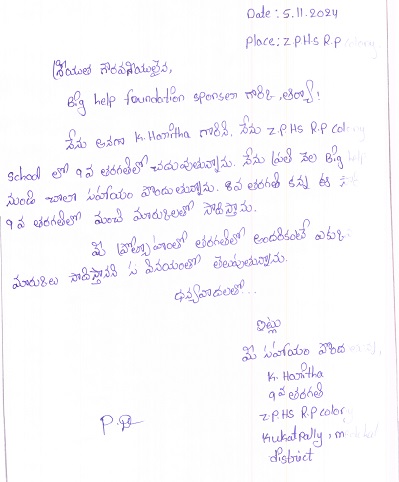 Date : 5.11.2024
Place: Z P H S R.P
శ్రీయుత గౌరవనీయులైన,
Big help foundation sponser గారికి ఆర్యా!
నేను అనగా K. Haritha గారిని. నేను Z.P H S R.P colony
school లో 9వ తరగతిలో చదువుతున్నాను. నేను ప్రతి నెల Big help
నుండి చాలా సహాయం పొందుతున్నాను. 8వ తరగతి కన్న ఈ
9వ తరగతిలో మంచి మారుకులతో సాధిస్తాను.
మీ ప్రోత్సాహంతో తరగతిలో అందరికంటే ఎక్కువ
మారుకులు సాధిస్తానని స వినయంతో తెలుపుతున్నాను.
ధన్యవాదలతో...
ఇట్లు
మీ సహాయం పొంద
K. Haritha
9వ తరగతి
Z P HS R.P colony
Kukatpally, m
district